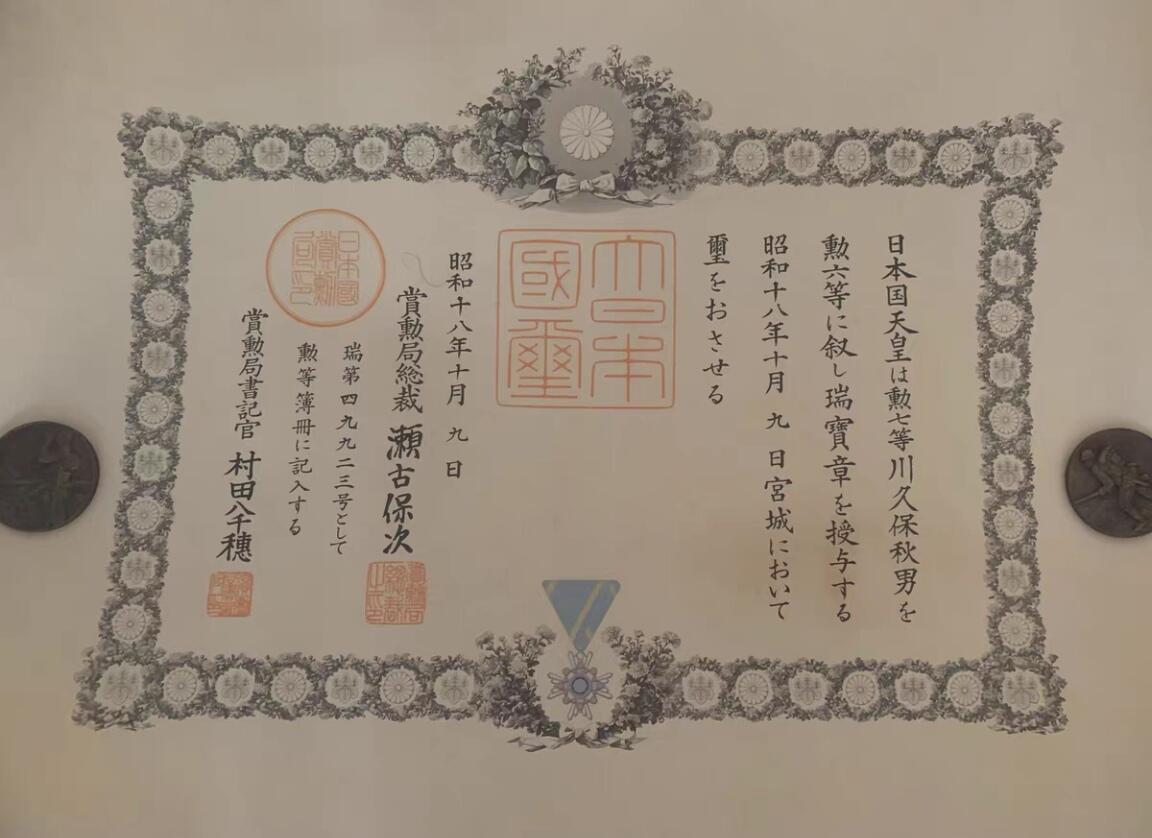 日本国天皇は勲七等川久保秋男を
勲六等に叙し瑞寶章を授与する
昭和十八年十月 九 日宮城において
璽をおさせる
大日本
國璽
昭和十八年十月 九 日
賞勲局総裁 瀬古保次
瑞第四九九二三号として
勲等簿冊に記入する
賞勲局書記官 村田八千穗
日本國
賞勲
局印